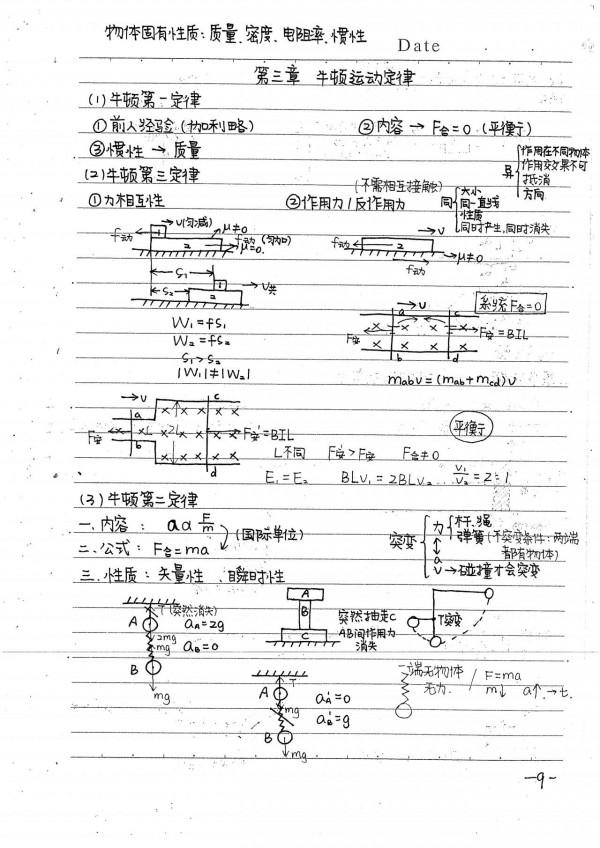 物体固有性质：质量、密度、电阻率、惯性
Date
第三章 牛顿运动定律
(1) 牛顿第一定律
①前人经验(伽利略) ②内容 → F合=0 (平衡)
③惯性 → 质量
异 作用在不同物体
作用效果不可
抵消
方向
(2) 牛顿第三定律
(不需相互接触)
①力相互性 ②作用力/反作用力
同 大小
同一直线
性质
同时产生,同时消失
v(匀减) μ≠0
f动 1 2 f动 (匀加)
μ=0
v
f动 2 μ≠0
f动
S1
S2 1 v共
2
W1=fS1
W2=fS2
S1>S2
|W1|≠|W2|
系统F合=0
v
a c
F安 F安'=BIL
b d
mabv=(mab+mcd)v
v
a c
L 2L
F安 F安'=BIL
b d
平衡
L不同 F安'>F安 F合≠0
E1=E2 BLV1=2BLV2 V1/V2=2:1
(3) 牛顿第二定律
一.内容: a∝F/m
(国际单位)
二.公式: F合=ma
三.性质: 矢量性、瞬时性
突变 力 杆、绳
弹簧(不突变条件:两端
都有物体)
a
v→碰撞才会突变
T(突然消失)
A aA=2g
2mg
mg aB=0
B
mg
A
B
C
突然抽走C
AB间作用力
消失
T突变
T
A aA'=0
mg
aB'=g
B
mg
一端无物体
无力
F=ma
m↓ a↑→t.
-9-